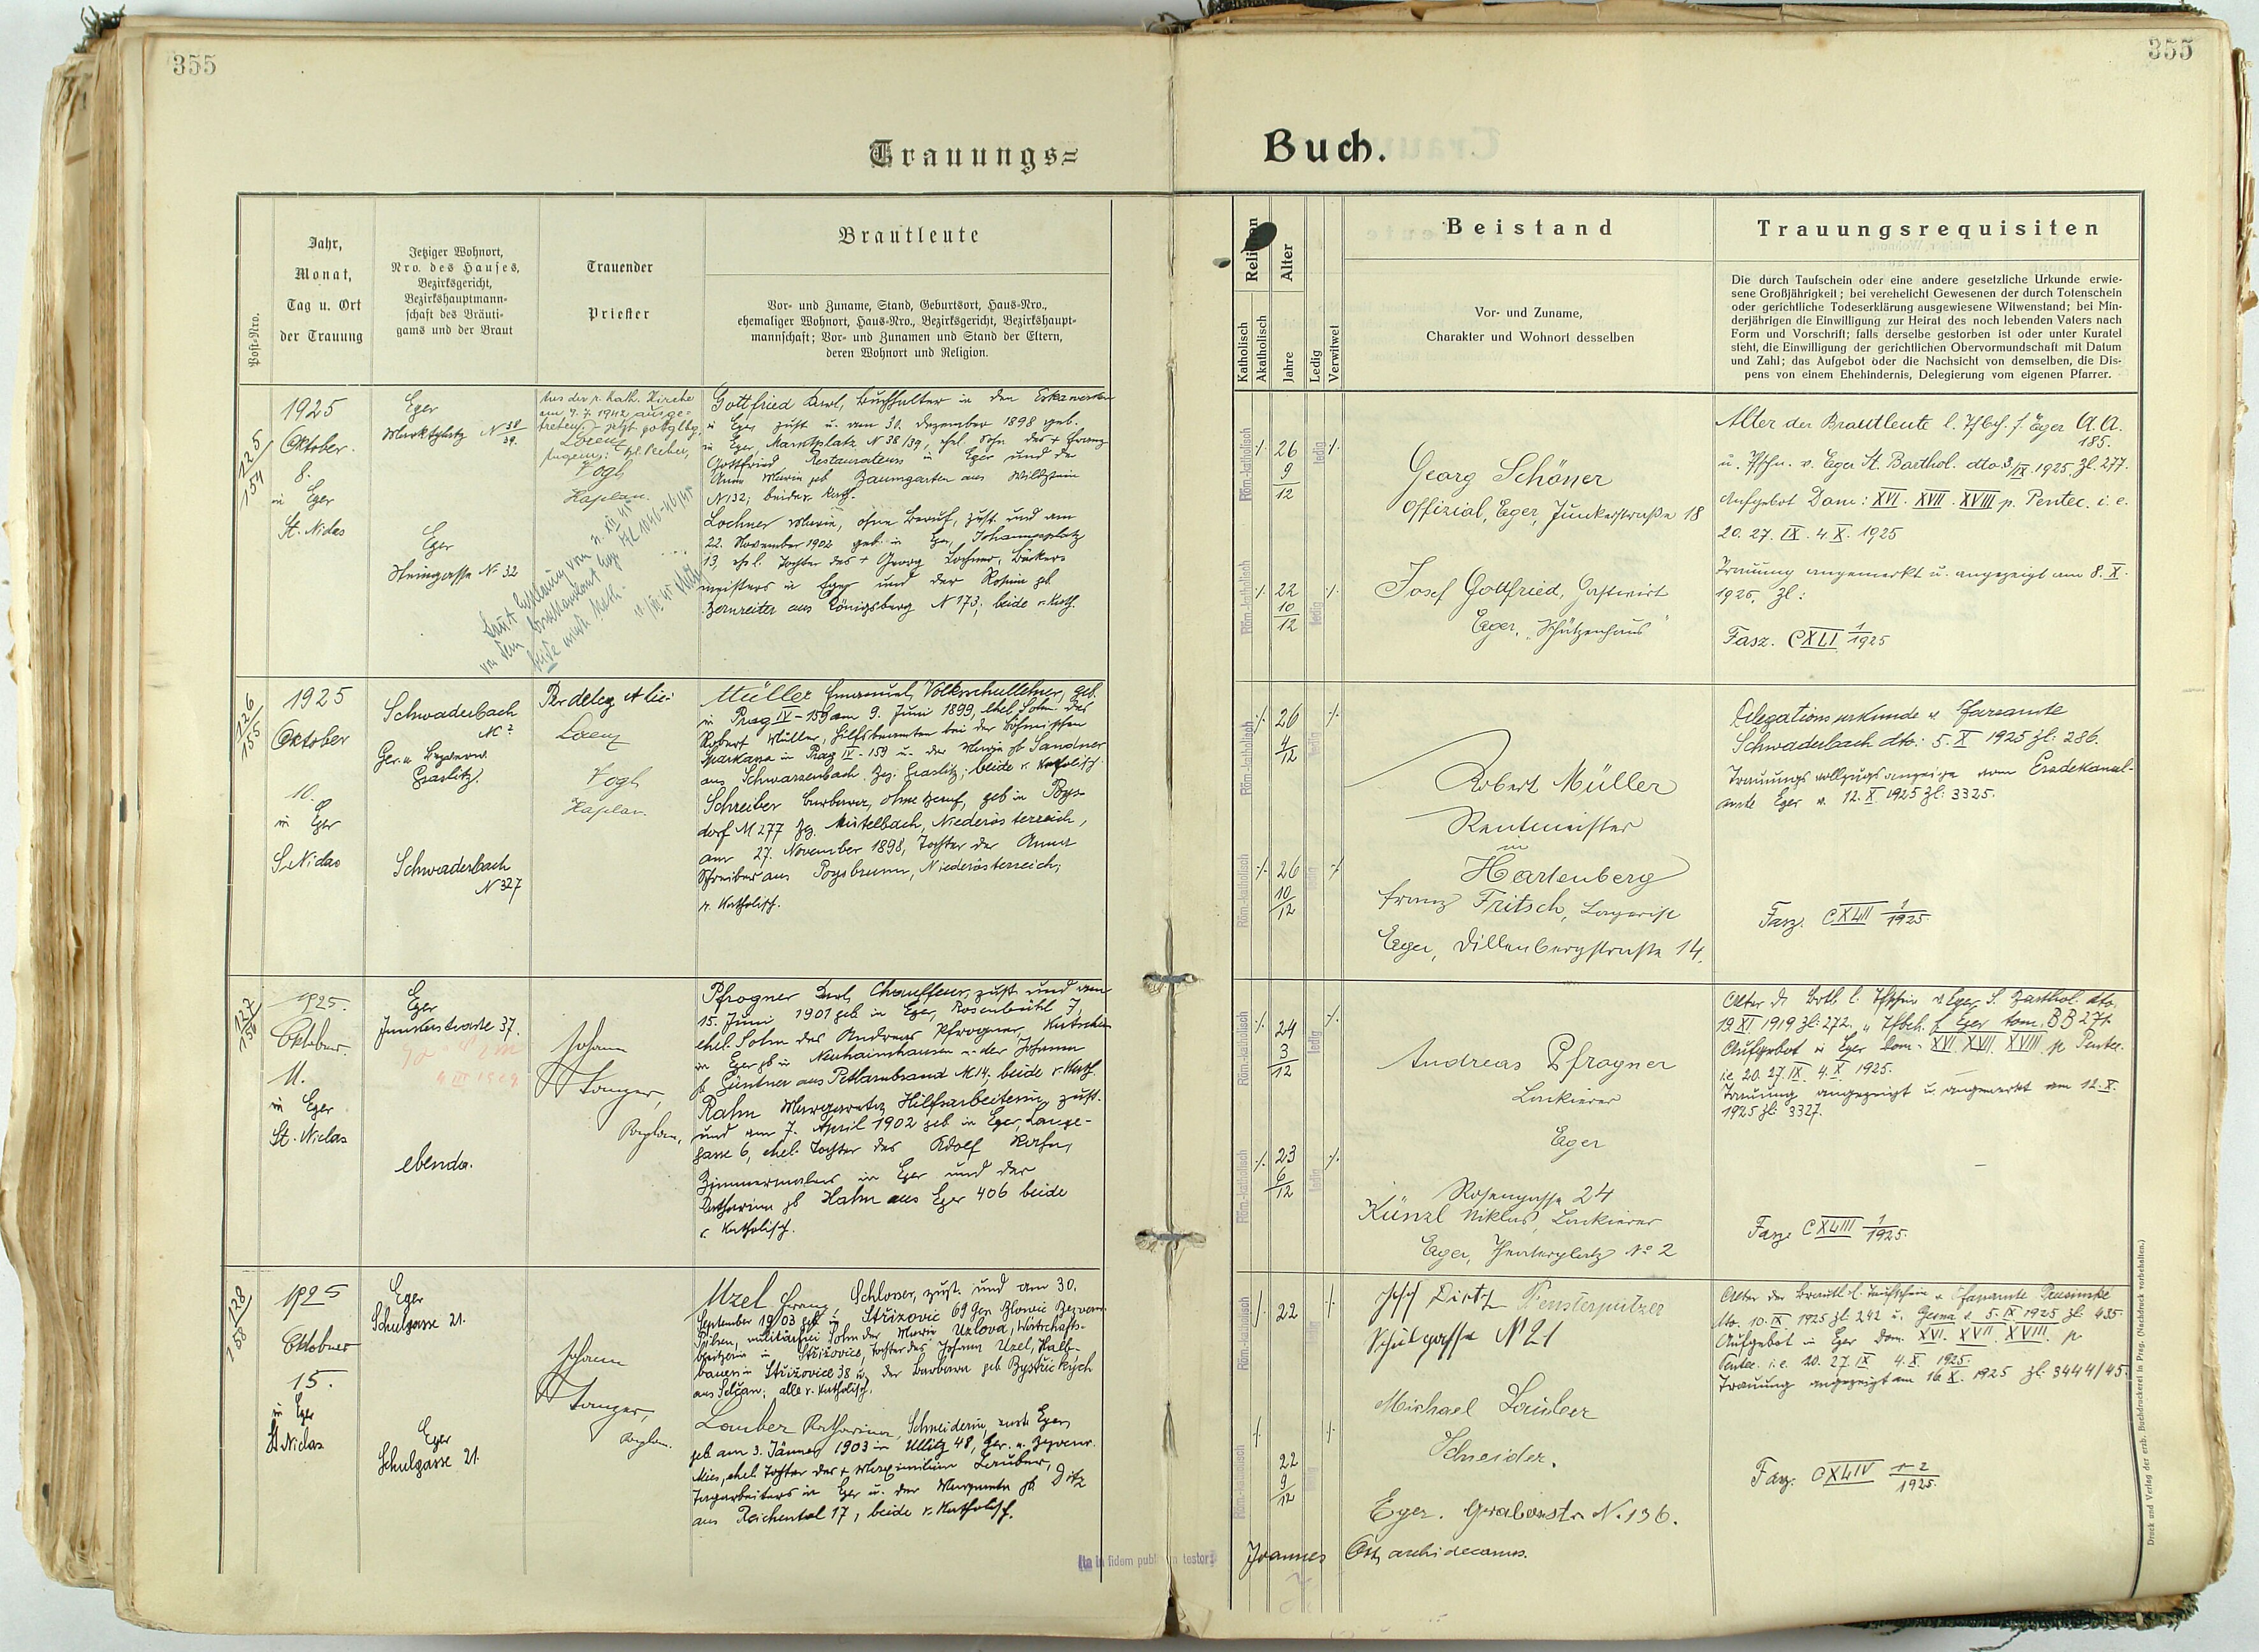 355
355
Trauungs=
Buch.
Post-Nro.
Jahr,
Monat,
Tag u. Ort
der Trauung
Jetziger Wohnort,
Nro. des Hauses,
Bezirksgericht,
Bezirkshauptmann-
schaft des Bräuti-
gams und der Braut
Trauender
Priester
Brautleute
Vor- und Zuname, Stand, Geburtsort, Haus-Nro.,
ehemaliger Wohnort, Haus-Nro., Bezirksgericht, Bezirkshaupt-
mannschaft; Vor- und Zunamen und Stand der Eltern,
deren Wohnort und Religion.
Religion
Katholisch
Akatholisch
Alter
Jahre
Ledig
Verwitwet
Beistand
Vor- und Zuname,
Charakter und Wohnort desselben
Trauungsrequisiten
Die durch Taufschein oder eine andere gesetzliche Urkunde erwie-
sene Großjährigkeit; bei verehelicht Gewesenen der durch Totenschein
oder gerichtliche Todeserklärung ausgewiesene Witwenstand; bei Min-
derjährigen die Einwilligung zur Heirat des noch lebenden Vaters nach
Form und Vorschrift; falls derselbe gestorben ist oder unter Kuratel
steht, die Einwilligung der gerichtlichen Obervormundschaft mit Datum
und Zahl; das Aufgebot oder die Nachsicht von demselben, die Dis-
pens von einem Ehehindernis, Delegierung vom eigenen Pfarrer.
125
154
1925
Oktober.
8.
in Eger
St. Niclas
Eger
Marktplatz N 38
39.
Eger
Steingasse N 32
Aus der r. kath. Kirche
am 9. 7. 1942 ausge-
treten, jetzt gottglbg
Lorenz
Vogl
Kaplan.
Gottfried Karl, Buchhalter in den Eskawerken
in Eger zust. u. am 30. Dezember 1898 geb.
in Eger, Marktplatz N 38/39, ehel. Sohn des + Franz
Gottfried Restaurateurs in Eger und der
Anna Maria geb Baumgarten aus Wildstein
N 132; beide r. kath.
Lochner Maria, ohne Beruf, zust. und am
22. November 1902 geb. in Eger, Johannesplatz
13, ehel. Tochter des + Georg Lochner, Bäcker-
meisters in Eger und der Rosina gb
Bernreiter aus Königsberg N 173; beide r. Kath.
Röm.-katholisch
26
9
12
ledig
Röm.-katholisch
22
10
12
ledig
Georg Schöner
Offizial, Eger, Junkerstraße 18
Josef Gottfried, Gastwirt
Eger, "Schützenhaus"
Alter der Brautleute l. Tfbch. f. Eger A.A.
185.
u. Tfschn. v. Eger St. Barthol. dto 3/IX. 1925. Zl. 277.
Aufgebot Dom: XVI. XVII. XVIII p. Pentec. i. e.
20. 27. IX. 4. X. 1925
Trauung angemerkt u. angezeigt am 8. X.
1925, Zl:
Fasz. CXLI 1
1925
126
155
1925
Oktober
10.
in Eger
S. Niclas
Schwaderbach
N ?
Ger. u. Bezverw.
Graslitz.
Schwaderbach
N 327
Per deleg. et lic:
Lorenz
Vogl
Kaplan.
Müller Emanuel, Volksschullehrer, geb.
in Prag IV-159 am 9. Juni 1899, ehel Sohn des
Robert Müller, Hilfsbeamten bei der Böhmischen
Sparkassa in Prag IV-159 u. der Maria gb Sandner
aus Schwarzenbach, Bez. Graslitz; beide r. Katholisch
Schreiber Barbara, ohne Beruf, geb in Poys-
dorf N 277 Bz. Mistelbach, Niederösterreich,
am 27. November 1898, Tochter der Anna
Schreiber aus Poysbrunn, Niederösterreich;
r. Katholisch.
Röm.-katholisch
26
4
12
ledig
Röm.-katholisch
26
10
12
ledig
Robert Müller
Rentmeister
in
Hartenberg
Franz Fritsch, Lagerist
Eger, Dillenbergstraße 14.
Delegationsurkunde v. Pfarramte
Schwaderbach dto: 5. X 1925 Zl: 286.
Trauungsvollzugsanzeige vom Erzdekanal-
amte Eger v. 12. X 1925 Zl: 3325.
Fasz. CXLII 1
1925.
127
156
1925.
Oktober.
11.
in Eger
St. Niclas
Eger
Junkerstrasse 37.
4. III 1929
ebenda.
Johann
Sanger,
Kaplan.
Pfrogner Karl, Chauffeur, zust. und am
15. Juni 1901 geb in Eger, Rosenbühl 7,
ehel. Sohn des Andreas Pfrogner, Kutscher
in Eger gb in Neuhaimhausen u. der Johanna
gb Güntner aus Petlarnbrand N 14; beide r. Kath.
Rahm Margareta, Hilfsarbeiterin, zust.
und am 7. April 1902 geb in Eger, Lange-
gasse 6, ehel. Tochter des Adolf Rahm,
Zimmermalers in Eger und der
Katharina gb Hahn aus Eger 406 beide
r. Katholisch.
Röm.-katholisch
24
3
12
ledig
Röm.-katholisch
23
6
12
ledig
Andreas Pfrogner
Lackierer
Eger
Rosengasse 24
Künzl Niklas, Lackierer
Eger, Theaterplatz No 2
Alter d. Brtl. l. Tfschein v. Eger S. Barthol. dto.
19. XI. 1919 Zl: 272. u. Tfbch. f. Eger tom. BB 271.
Aufgebot in Eger Dom. XVI. XVII. XVIII. p. Pentec.
i.e. 20. 27. IX. 4. X. 1925.
Trauung angezeigt u. angemerkt am 12. X.
1925 Zl: 3327.
Fasz. CXLIII 1
1925.
128
158
1925
Oktober
15.
in Eger
St Niclas
Eger
Schulgasse 21.
Eger
Schulgasse 21.
Johann
Sanger,
Kaplan.
Uzel Franz, Schlosser, zust. und am 30.
September 1903 geb in Střižovic 69 Ger. Blowic Bezverw.
Pilsen, Sohn der Marie Uzlová, Wirtschafts-
besitzerin in Střižovice, Tochter des Johann Uzel, Halb-
bauer in Střižovice 38 u. der Barbara geb Bystřických
aus Selčan; alle r. Katholisch.
Lauber Katharina, Schneiderin, zust. Eger,
geb am 3. Jänner 1903 in Ullitz 48, Ger. u. Bezverw.
Mies, ehel. Tochter des + Maximilian Lauber,
Tagarbeiters in Eger u. der Margareta gb Dietz
aus Reichental 17, beide r. Katholisch.
Röm.-katholisch
22
ledig
Röm.-katholisch
22
9
12
ledig
Josef Dietz Fensterputzer
Schulgasse N 21
Michael Lauber
Schneider.
Eger. Grabenstr. N. 136.
Alter der Brautl. l. Taufschein v. Pfarramte
dto. 10. IX. 1925 Zl: 242 u. 5. IX 1925 Zl: 435.
Aufgebot in Eger Dom. XVI. XVII. XVIII. p
Pentec. i.e. 20. 27. IX 4. X. 1925.
Trauung angezeigt am 16. X. 1925 Zl: 3444/45.
Fasz. CXLIV 1-2
1925.
Ita in fidem publ testor:
Joannes Ost, archidecanus.
Druck und Verlag der erzb. Buchdruckerei in Prag. (Nachdruck vorbehalten.)